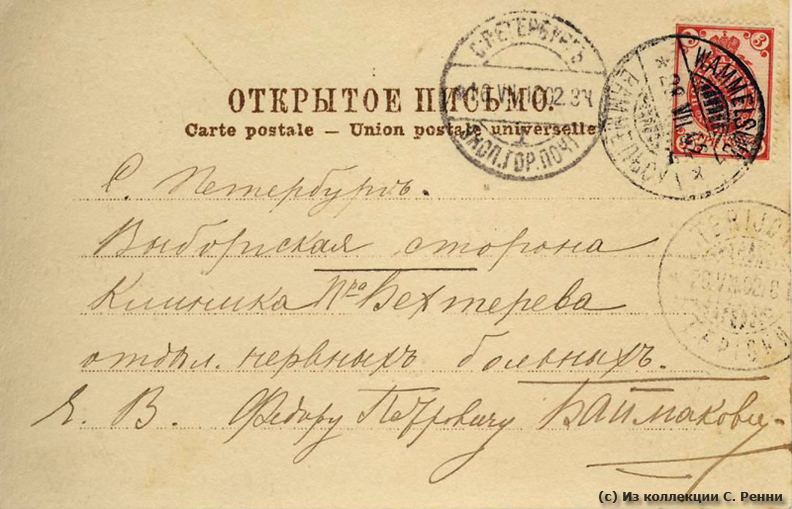 ОТКРЫТОЕ ПИСЬМО.
Carte postale — Union postale universelle
С. ПЕТЕРБУРГЪ
ГОР. ПОЧТ
3
3
WAMMELS
TERIJOKI
С. Петербургъ.
Выборгская сторона
Клиника Пра Бехтерева
отдѣл. нервныхъ больныхъ.
Е. В. Федору Петровичу Баймакову
(с) Из коллекции С. Ренни